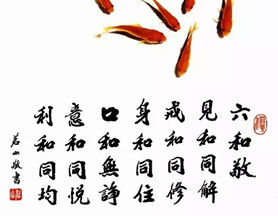 六和敬
見和同解
戒和同修
身和同住
口和無諍
意和同悦
利和同均
若山敬書